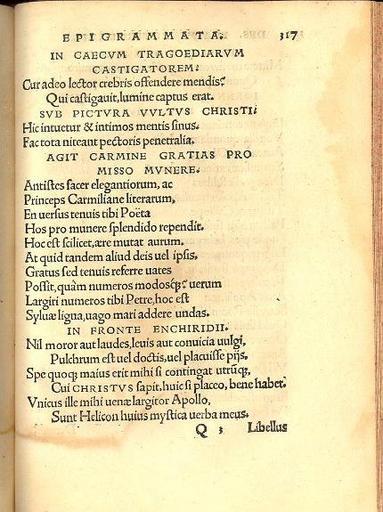 EPIGRAMMATA. 317
IN CAECVM TRAGOEDIARVM
CASTIGATOREM.
Cur adeo lector crebris offendere mendis?
Qui castigauit, lumine captus erat.
SVB PICTVRA VVLTVS CHRISTI.
Hic intuetur & intimos mentis sinus.
Fac tota niteant pectoris penetralia.
AGIT CARMINE GRATIAS PRO
MISSO MVNERE.
Antistes sacer elegantiorum, ac
Princeps Carmiliane literarum,
En uersus tenuis tibi Poëta
Hos pro munere splendido rependit.
Hoc est scilicet, ære mutat aurum.
At quid tandem aliud deis uel ipsis,
Gratus sed tenuis referre uates
Possit, quàm numeros modosq́;? uerum
Largiri numeros tibi Petre, hoc est
Syluæ ligna, uago mari addere undas.
IN FRONTE ENCHIRIDII.
Nil moror aut laudes, leuis aut conuicia uulgi,
Pulchrum est uel doctis, uel placuisse pijs.
Spe quoq; maius erit mihi si contingat utrũq;,
Cui CHRISTVS sapit, huic si placeo, bene habet.
Vnicus ille mihi uenæ largitor Apollo,
Sunt Helicon huius mystica uerba meus.
Q 3 Libellus